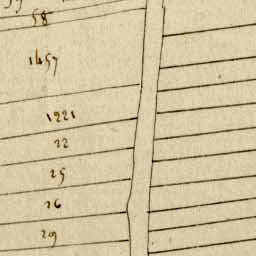 58
1457
1221
22
25
26
29